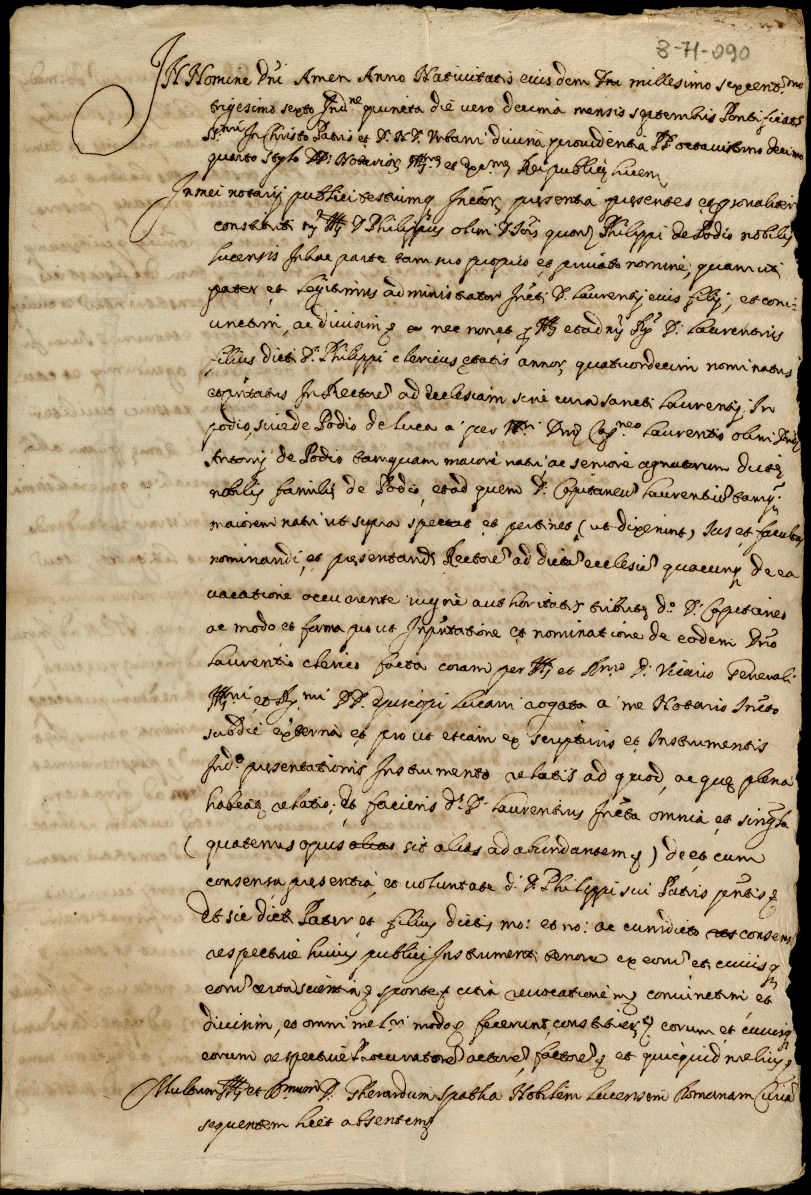 8-71-090
IN Nomine Dni Amen Anno Nativitatis eius dem Dni millesimo sexcent.mo
trigesimo sexto Ind.ne quinta die vero decima mensis septembris Pontificatus
S.mi In Christo Patris et D. N. D. Urbani divina providentia PP. octavi anno decimo
quarto stylo DD. Notarior. Ill.me et Ex.me Rei publice Lucen.
In mei notarij publici testiumq. infrõr. presentia presentes et personaliter
constituti Ill. D. Philippus olim D. Iõis quond. Philippi de Podio nobilis
lucensis In hac parte tam suo proprio et privato nomine, quam uti
pater et legitimus administrator Infrti D. Laurentij eius filij, et coni=
unctim, ac divisim, nec non et Ill. et adm. R. D. Laurentius
filius dicti D. Philippi clericus etatis annor. quatuordecim nominatus
et presentatus In Rectorem ad ecclesiam sine cura Sancti Laurentij In
podio, sive de Podio de Luca a per Ill. Dno Cap.neo Laurentio olim Dni
Antonij de Podio tamquam maiore natu ac seniore agnatorum dicte
nobilis familie de Podio, et ad quem D. Capitaneum Laurentium tamq.
maiorem natu ut supra spectat et pertinet (ut dixerunt) Ius et facultas
nominandi, et presentandi Rectorem ad dictam ecclesiam quacunq. de ea
vacatione occurrente vigore authoritatis tribute d.o D. Capitaneo
ac modo et forma prout In presentatione et nominatione de eodem Dno
Laurentio clerico facta coram per Ill. et Adm. R. D. Vicario Generali
Ill.mi et R.mi DD. Episcopi Lucani rogata a me Notario Infrto
sub die externa et prout etiam ex scripturis et Instrumentis
Ind.o presentationis Instrumento relatis ad quod, ac que plena
habeatur relatio; Et faciens d. D. Laurentius Infrta omnia et singula
(quatenus opus sit alias ad abundantem) de et cum
consensu presentia, et voluntate d. D. Philippi sui Patris pntis
Et sic dicti Pater et filius dictis mo: et no: ac cum dicto consensu
respective huius publici Instrumenti tenore ex eorum et cuiusq.
eorum certa scientia sponte citra revocationem coniunctim et
divisim, et omni meliori modo fecerunt, constituerunt eorum et cuiusq.
eorum respective Procuratorem actorem factorem et quicquid melius
Multum Ill. et D. Gherardum Spatha Nobilem Lucensem Romanam Curiam
sequentem licet absentem